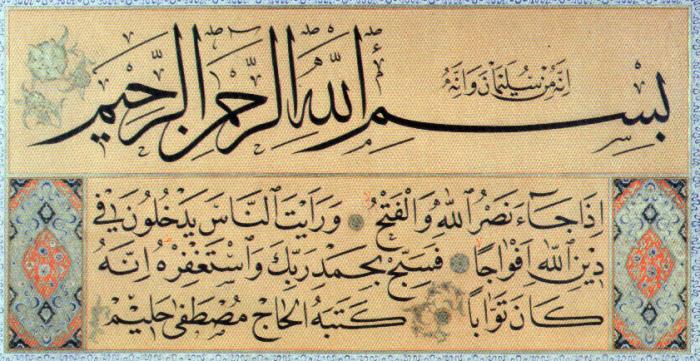 انه من سليمان وانه
بسم الله الرحمن الرحيم
اذا جاء نصر الله والفتح ورايت الناس يدخلون في
دين الله افواجا فسبح بحمد ربك واستغفره انه
كان توابا كتبه الحاج مصطفى حليم